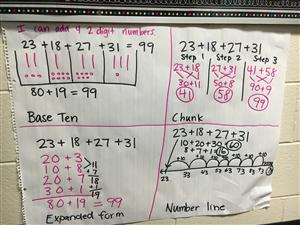 I can add 4 2 digit numbers.
23 + 18 + 27 + 31 = 99
80 + 19 = 99
Base Ten
23 + 18 + 27 + 31
Step 1 Step 2 Step 3
23+18 27+31 41+58
30+11 50+8 90+9
41 58 99
Chunk
23 + 18 + 27 + 31
20 + 3
10 + 8
20 + 7
30 + 1
80 + 19 = 99
Expanded form
23 + 18 + 27 + 31
10 + 20 + 30 60
8 + 7 + 1
23 33 43 53 63 73 83
Number line